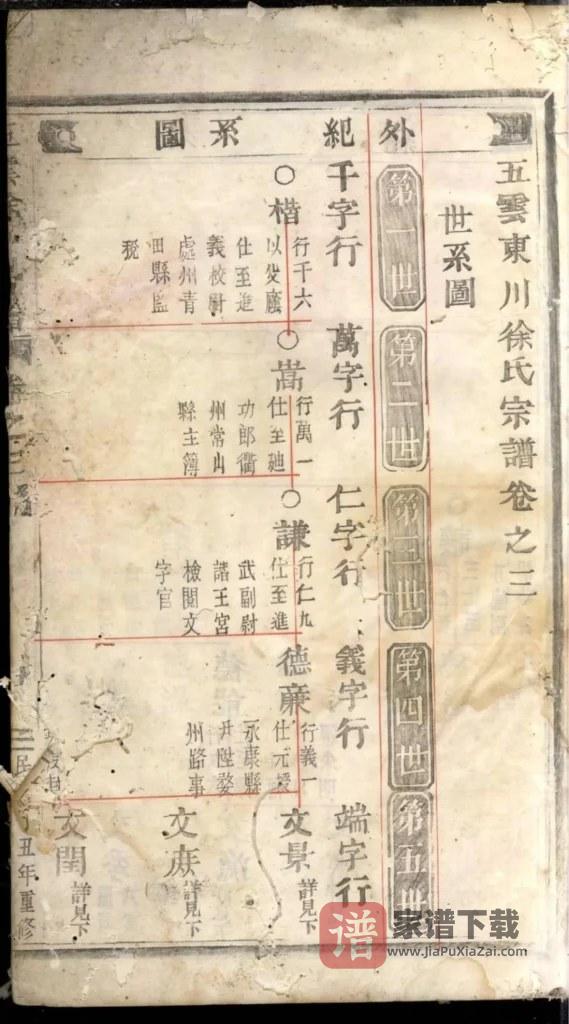 五雲東川徐氏宗譜卷之三
世系圖
外紀系圖
第一世
第二世
第三世
第四世
第五世
千字行
楷
行千六
以父廕
仕至進
義校尉
處州青
田縣監
稅
萬字行
嵩
行萬一
仕至迪
功郎衢
州常山
縣主簿
仁字行
謙
行仁九
仕至進
武副尉
諸王宮
檢閱文
字官
義字行
德廉
行義一
仕元授
永康縣
丞陞婺
州路事
端字行
文景 詳見下
文庶 詳見下
文閏 詳見下
二
民
丑年重修
谱 家谱下载
www.JiaPuXiaZai.com